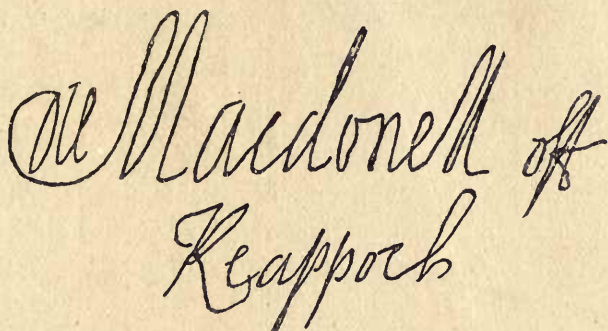 Macdonell off
Keappoch